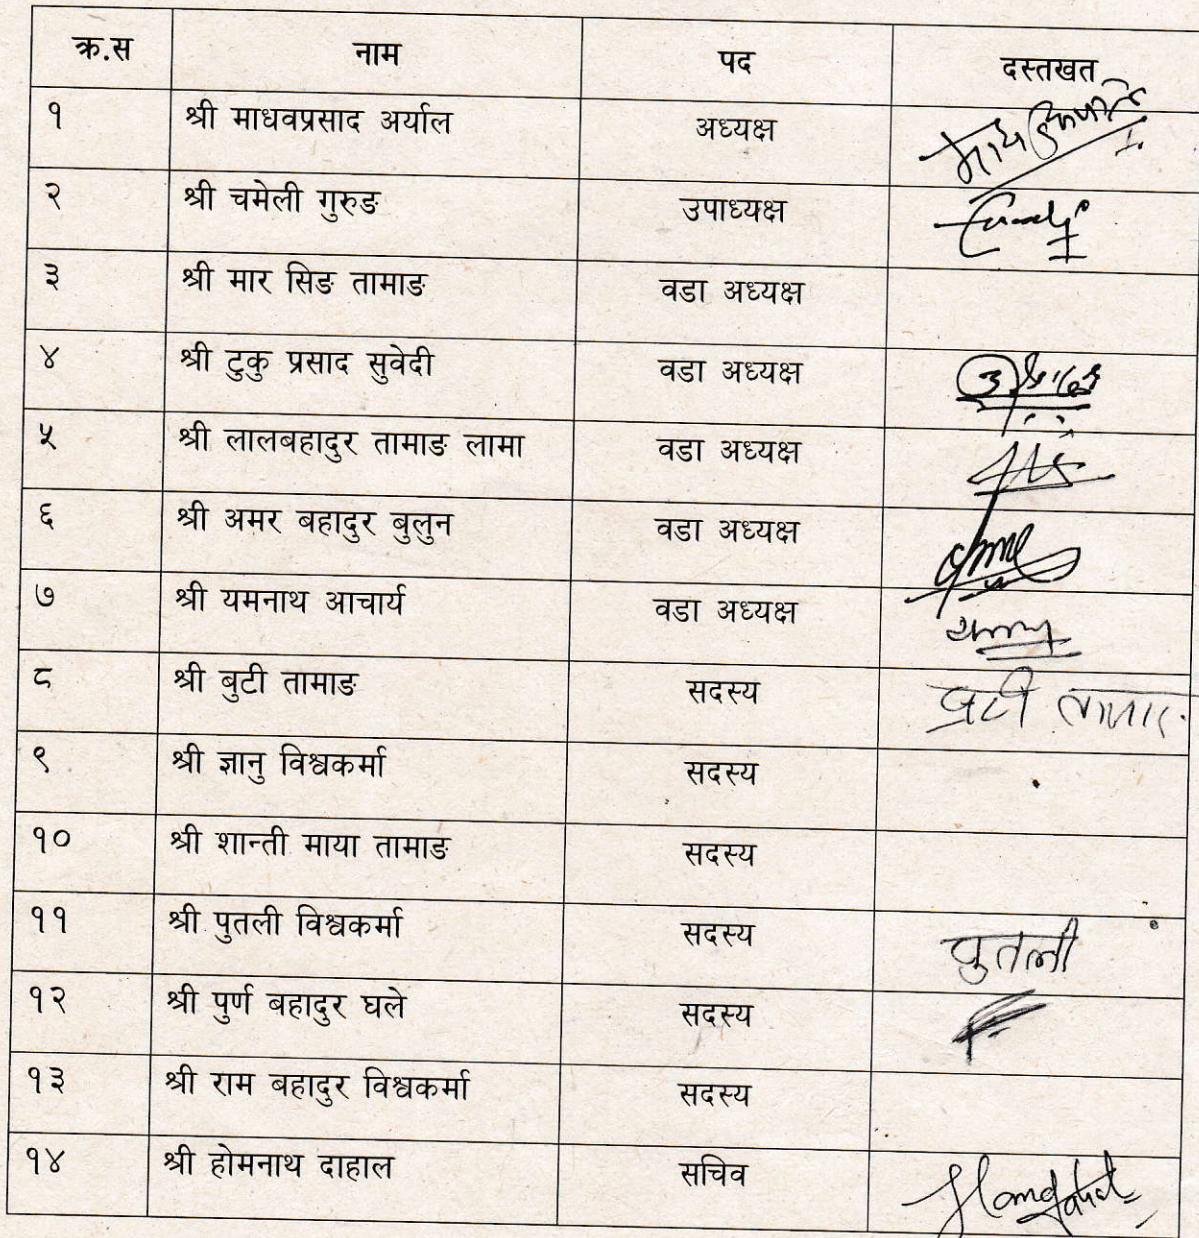 क्र.स नाम पद दस्तखत
१ श्री माधवप्रसाद अर्याल अध्यक्ष
२ श्री चमेली गुरुङ उपाध्यक्ष
३ श्री मार सिङ तामाङ वडा अध्यक्ष
४ श्री टुकु प्रसाद सुवेदी वडा अध्यक्ष
५ श्री लालबहादुर तामाङ लामा वडा अध्यक्ष
६ श्री अमर बहादुर बुलुन वडा अध्यक्ष
७ श्री यमनाथ आचार्य वडा अध्यक्ष
८ श्री बुटी तामाङ सदस्य
९ श्री ज्ञानु विश्वकर्मा सदस्य
१० श्री शान्ती माया तामाङ सदस्य
११ श्री पुतली विश्वकर्मा सदस्य पुतली
१२ श्री पुर्ण बहादुर घले सदस्य
१३ श्री राम बहादुर विश्वकर्मा सदस्य
१४ श्री होमनाथ दाहाल सचिव